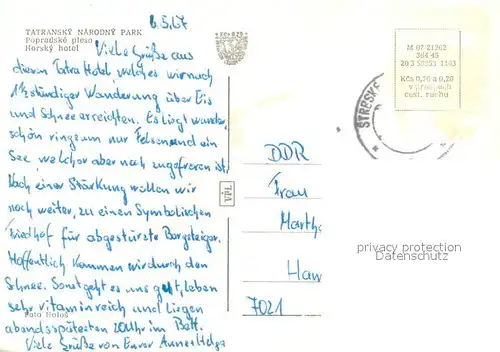 6.5.67
TATRANSKÝ NÁRODNÝ PARK
Popradské pleso
Horský hotel
Viele Grüße aus
diesem Tatra Hotel, welches wir nach
1½ stündiger Wanderung über Eis
und Schnee erreichten. Es liegt wunder
schön ringsum nur Felsen und ein
See, welcher aber noch zugefroren ist.
Nach einer Stärkung wollen wir
noch weiter, zu einen Symbolischen
Friedhof für abgestürzte Bergsteiger.
Hoffentlich kommen wir durch den
Schnee. Sonst geht es uns gut, leben
sehr vitaminreich und liegen
Foto
abends spätesten 20 Uhr im Bett.
Viele Grüße von Eurer Anne + Helga
M 07-21262
384 45
1163
Kčs 0,70 a 0,20
v prídejoch
cest. ruchu
STRBSKÉ
VPL
DDR
Frau
Marth
Han
7021
privacy protection
Datenschutz